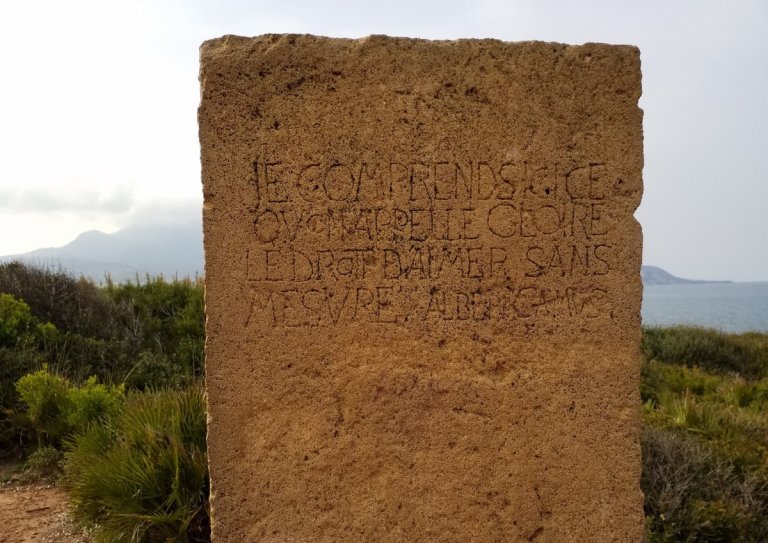 JE COMPRENDS ICI CE
QU'ON APPELLE GLOIRE
LE DROIT D'AIMER SANS
MESURE, ALBERT CAMUS.